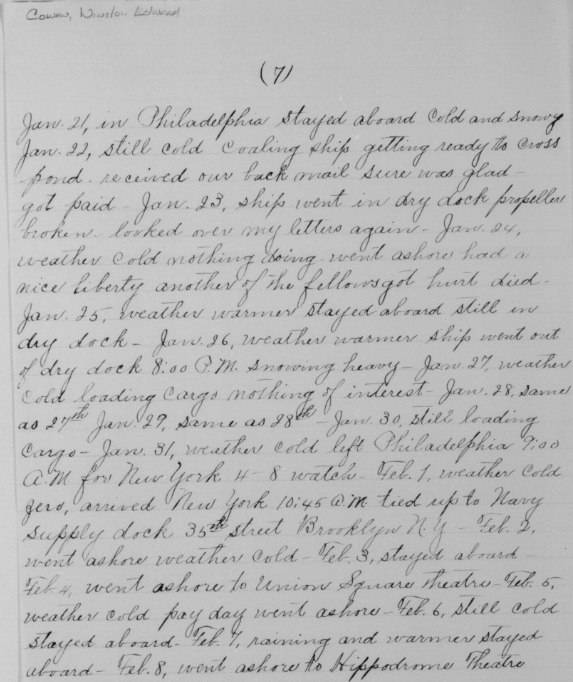 Cowan, Winslow Edward
(7)
Jan. 21, in Philadelphia stayed aboard cold and snowy
Jan. 22, still cold Coaling ship getting ready to cross
pond. received our back mail sure was glad -
got paid - Jan. 23, ship went in dry dock propeller
broken - looked over my letters again - Jan. 24,
weather cold nothing doing - went ashore had a
nice liberty another of the fellows got hurt died -
Jan. 25, weather warmer stayed aboard still in
dry dock - Jan. 26, weather warmer ship went out
of dry dock 8:00 P.M. snowing heavy - Jan. 27, weather
cold loading cargo nothing of interest - Jan. 28, same
as 27th Jan. 29, same as 28th - Jan. 30, still loading
cargo - Jan. 31, weather cold left Philadelphia 9:00
A.M for New York 4-8 watch - Feb. 1, weather cold
zero, arrived New York 10:45 A.M. tied up to Navy
supply dock 35th street Brooklyn N.Y. - Feb. 2,
went ashore weather cold - Feb. 3, stayed aboard -
Feb. 4, went ashore to Union Square theatre - Feb. 5,
weather cold pay day went ashore - Feb. 6, still cold
stayed aboard - Feb. 7, raining and warmer stayed
aboard - Feb. 8, went ashore to Hippodrome Theatre